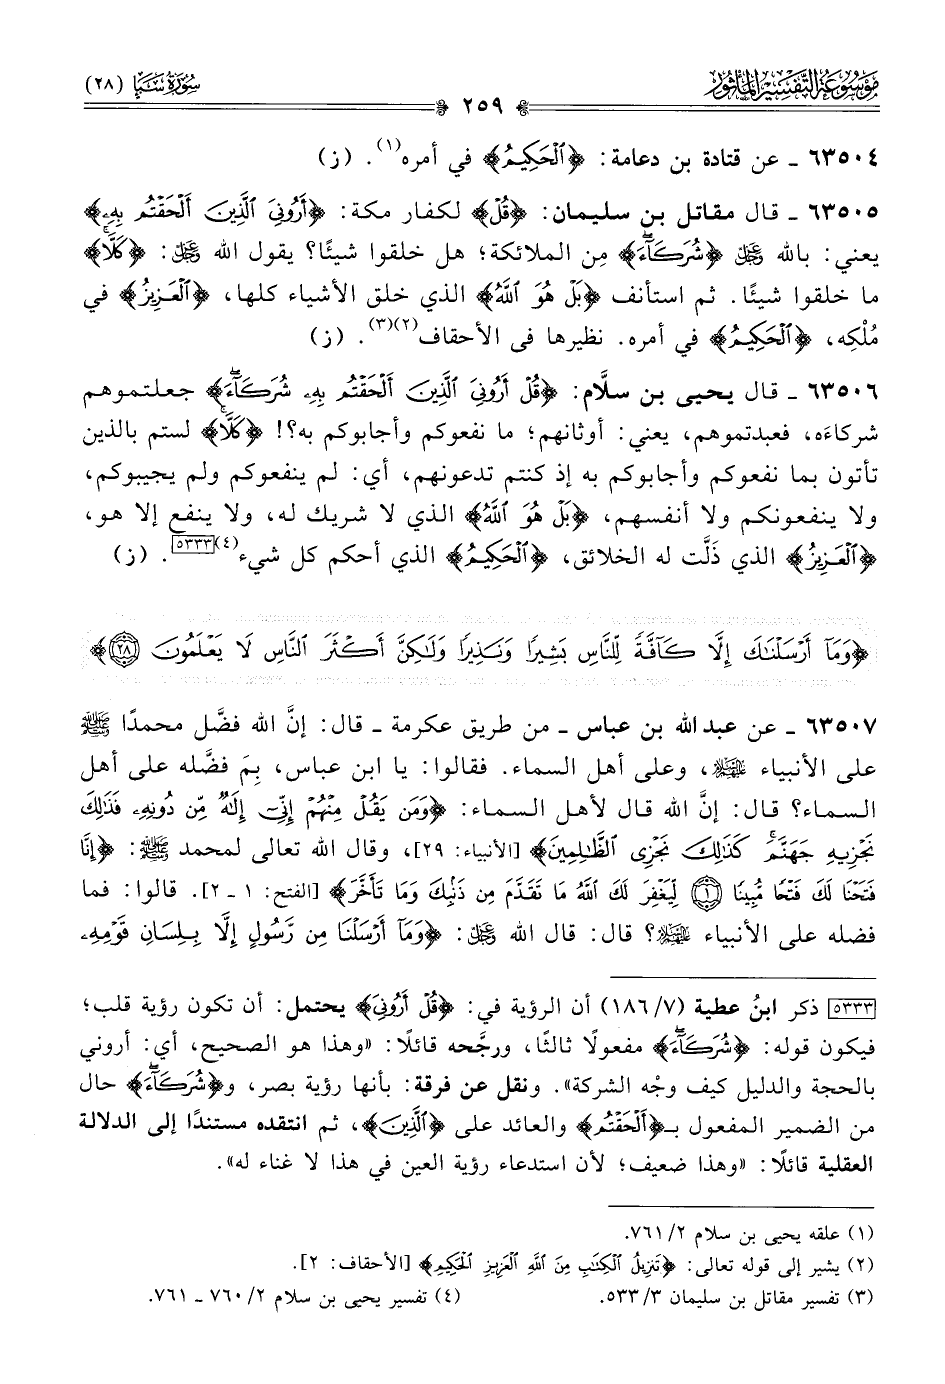 موسوعة التفسير المأثور
سورة سبأ (٢٨)
٢٥٩
٦٣٥٠٤ ـ عن قتادة بن دعامة: ﴿ٱلۡحَكِيمُ﴾ في أمره(١). (ز)
٦٣٥٠٥ ـ قال مقاتل بن سليمان: ﴿قُلۡ﴾ لكفار مكة: ﴿أَرُونِيَ ٱلَّذِينَ أَلۡحَقۡتُم بِهِۦ﴾
يعني: بالله ﷿ ﴿شُرَكَآءَۖ﴾ مِن الملائكة؛ هل خلقوا شيئًا؟ يقول الله ﷿: ﴿كَلَّاۚ﴾
ما خلقوا شيئًا. ثم استأنف ﴿بَلۡ هُوَ ٱللَّهُ﴾ الذي خلق الأشياء كلها، ﴿ٱلۡعَزِيزُ﴾ في
مُلْكِه، ﴿ٱلۡحَكِيمُ﴾ في أمره. نظيرها في الأحقاف(٢)(٣). (ز)
٦٣٥٠٦ ـ قال يحيى بن سلَّام: ﴿قُلۡ أَرُونِيَ ٱلَّذِينَ أَلۡحَقۡتُم بِهِۦ شُرَكَآءَۖ﴾ جعلتموهم
شركاءَه، فعبدتموهم، يعني: أوثانهم؛ ما نفعوكم وأجابوكم به؟! ﴿كَلَّاۚ﴾ لستم بالذين
تأتون بما نفعوكم وأجابوكم به إذ كنتم تدعونهم، أي: لم ينفعوكم ولم يجيبوكم،
ولا ينفعونكم ولا أنفسهم، ﴿بَلۡ هُوَ ٱللَّهُ﴾ الذي لا شريك له، ولا ينفع إلا هو،
﴿ٱلۡعَزِيزُ﴾ الذي ذَلَّت له الخلائق، ﴿ٱلۡحَكِيمُ﴾ الذي أحكم كل شيء(٤)[٥٣٣٣]. (ز)
﴿وَمَآ أَرۡسَلۡنَٰكَ إِلَّا كَآفَّةٗ لِّلنَّاسِ بَشِيرٗا وَنَذِيرٗا وَلَٰكِنَّ أَكۡثَرَ ٱلنَّاسِ لَا يَعۡلَمُونَ ٢٨﴾
٦٣٥٠٧ ـ عن عبد الله بن عباس ـ من طريق عكرمة ـ قال: إنَّ الله فضَّل محمدًا ﷺ
على الأنبياء ﵈، وعلى أهل السماء. فقالوا: يا ابن عباس، بِمَ فضَّله على أهل
السماء؟ قال: إنَّ الله قال لأهل السماء: ﴿وَمَن يَقُلۡ مِنۡهُمۡ إِنِّيٓ إِلَٰهٞ مِّن دُونِهِۦ فَذَٰلِكَ
نَجۡزِيهِ جَهَنَّمَۚ كَذَٰلِكَ نَجۡزِي ٱلظَّٰلِمِينَ﴾ [الأنبياء: ٢٩]، وقال الله تعالى لمحمد ﷺ: ﴿إِنَّا
فَتَحۡنَا لَكَ فَتۡحٗا مُّبِينٗا ١ لِّيَغۡفِرَ لَكَ ٱللَّهُ مَا تَقَدَّمَ مِن ذَنۢبِكَ وَمَا تَأَخَّرَ﴾ [الفتح: ١ ـ ٢]. قالوا: فما
فضله على الأنبياء ﵈؟ قال: قال الله ﷿: ﴿وَمَآ أَرۡسَلۡنَا مِن رَّسُولٍ إِلَّا بِلِسَانِ قَوۡمِهِۦ
[٥٣٣٣] ذكر ابنُ عطية (٧/ ١٨٦) أن الرؤية في: ﴿قُلۡ أَرُونِيَ﴾ يحتمل: أن تكون رؤية قلب؛
فيكون قوله: ﴿شُرَكَآءَۖ﴾ مفعولًا ثالثًا، ورجَّحه قائلًا: «وهذا هو الصحيح، أي: أروني
بالحجة والدليل كيف وجْه الشركة». ونقل عن فرقة: بأنها رؤية بصر، و﴿شُرَكَآءَۖ﴾ حال
من الضمير المفعول بـ﴿أَلۡحَقۡتُم﴾ والعائد على ﴿ٱلَّذِينَ﴾، ثم انتقده مستندًا إلى الدلالة
العقلية قائلًا: «وهذا ضعيف؛ لأن استدعاء رؤية العين في هذا لا غناء له».
(١) علقه يحيى بن سلام ٢/ ٧٦١.
(٢) يشير إلى قوله تعالى: ﴿تَنزِيلُ ٱلۡكِتَٰبِ مِنَ ٱللَّهِ ٱلۡعَزِيزِ ٱلۡحَكِيمِ﴾ [الأحقاف: ٢].
(٣) تفسير مقاتل بن سليمان ٣/ ٥٣٣. (٤) تفسير يحيى بن سلام ٢/ ٧٦٠ ـ ٧٦١.